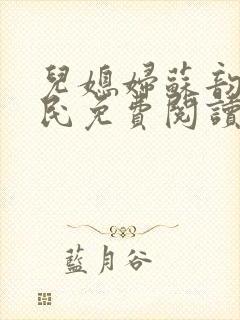 兒媳婦蘇韵
民免費閱讀
藍月谷